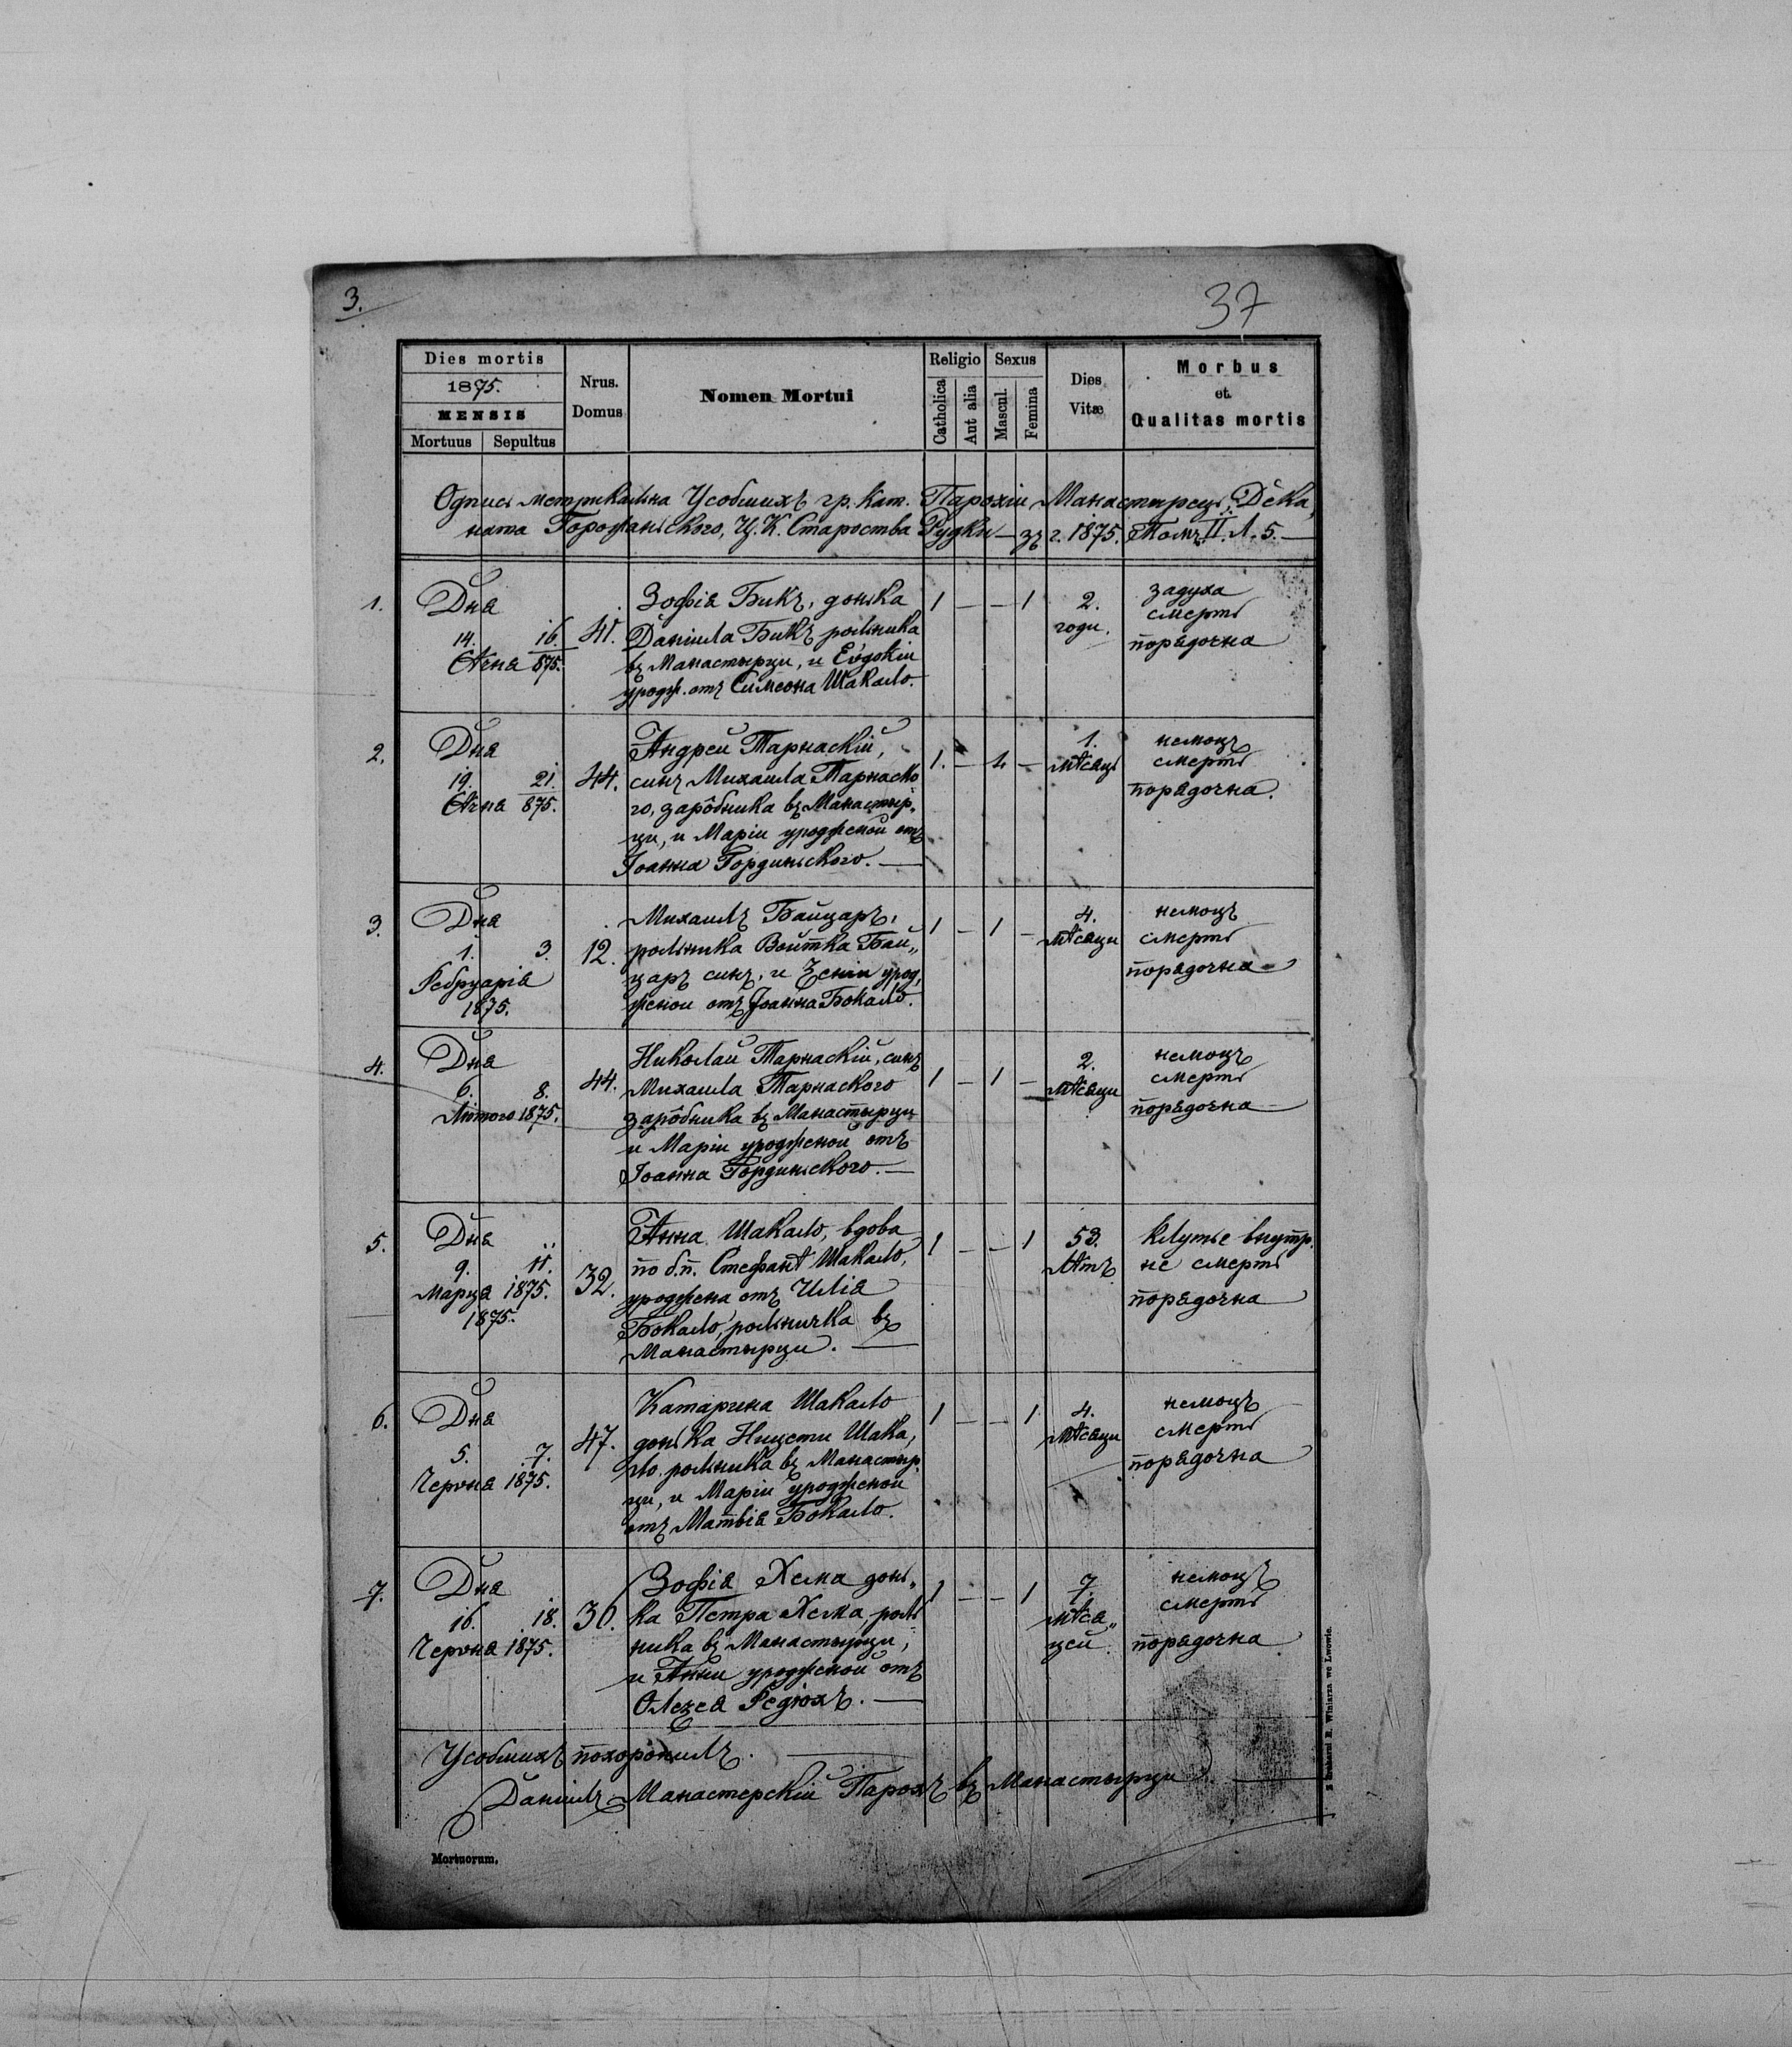 3.
37
Dies mortis
1875.
MENSIS
Mortuus Sepultus
Nrus. Domus
Nomen Mortui
Religio
Catholica
Aut alia
Sexus
Mascul.
Femina
Dies Vitæ
Morbus
et
Qualitas mortis
Одпись метрикальна Усобшихъ гр. Кат. Парохіи Манастырець, Дека,
ната Горожаньского, Ц. К. Староства Рудки — зъ г. 1875. Томъ II. Л. 5. —
1.
Дня
14. 16.
Сѣчня 875.
41.
Зофія Бикъ, донька
Даніила Бикъ рольника
въ Манастырци, и Евдокіи
уродж. отъ Симеона Шакало.
1 — — 1
2.
годи.
задуха
смерть
порядочна
2.
Дня
19. 21.
Сѣчня 875.
44.
Андрей Тарнаскій,
синъ Михаила Тарнаско
го, зарôбника въ Манастыр,
ци, и Маріи уродженой отъ
Іоанна Гординьского. —
1. — 1 —
1.
мѣсяць
немоць
смерть
порядочна.
3.
Дня
1. 3.
Фебруарія
1875.
12.
Михаилъ Байцаръ,
рольника Войтка Бай„
царъ синъ, и Ксеніи урод,
женои отъ Іоанна Бокало.
1 — 1 —
4.
мѣсяци
немоць
смерть
порядочна
4.
Дня
6. 8.
Лютого 1875.
44.
Николай Тарнаскій, синъ
Михаила Тарнаского
зарôбника въ Манастырци
и Маріи уродженой отъ
Іоанна Гординьского. —
1 — 1 —
2.
мѣсяци
немоць
смерть
порядочна
5.
Дня
9. 11.
Марця 1875.
1875.
32.
Анна Шакало, вдова
по б.п. Стефанѣ Шакало,
уроджена отъ Илія
Бокало, рольничка въ
Манастырци. —
1 — — 1
53.
лѣтъ
клутье внутр.
не смерть
порядочна
6.
Дня
5. 7.
Червня 1875.
47.
Катарина Шакало
донька Ницети Шака,
ло рольника въ Манастыр
ци, и Маріи уродженои
отъ Матвія Бокало.
1 — — 1
4.
мѣсяци
немоць
смерть
порядочна
7.
Дня
16. 18.
Червня 1875.
36.
Зофія Хема донь„
ка Петра Хема, роль
ника въ Манастырци,
и Анни уродженой отъ
Олексея Федюхъ. —
1 — — 1
7.
мѣся„
цей
немоць
смерть
порядочна
Усобшихъ похоронилъ. —
Даніилъ Манастерскій Парохъ въ Манастырци —
Mortuorum.
Z Drukarni E. Winiarza we Lwowie.